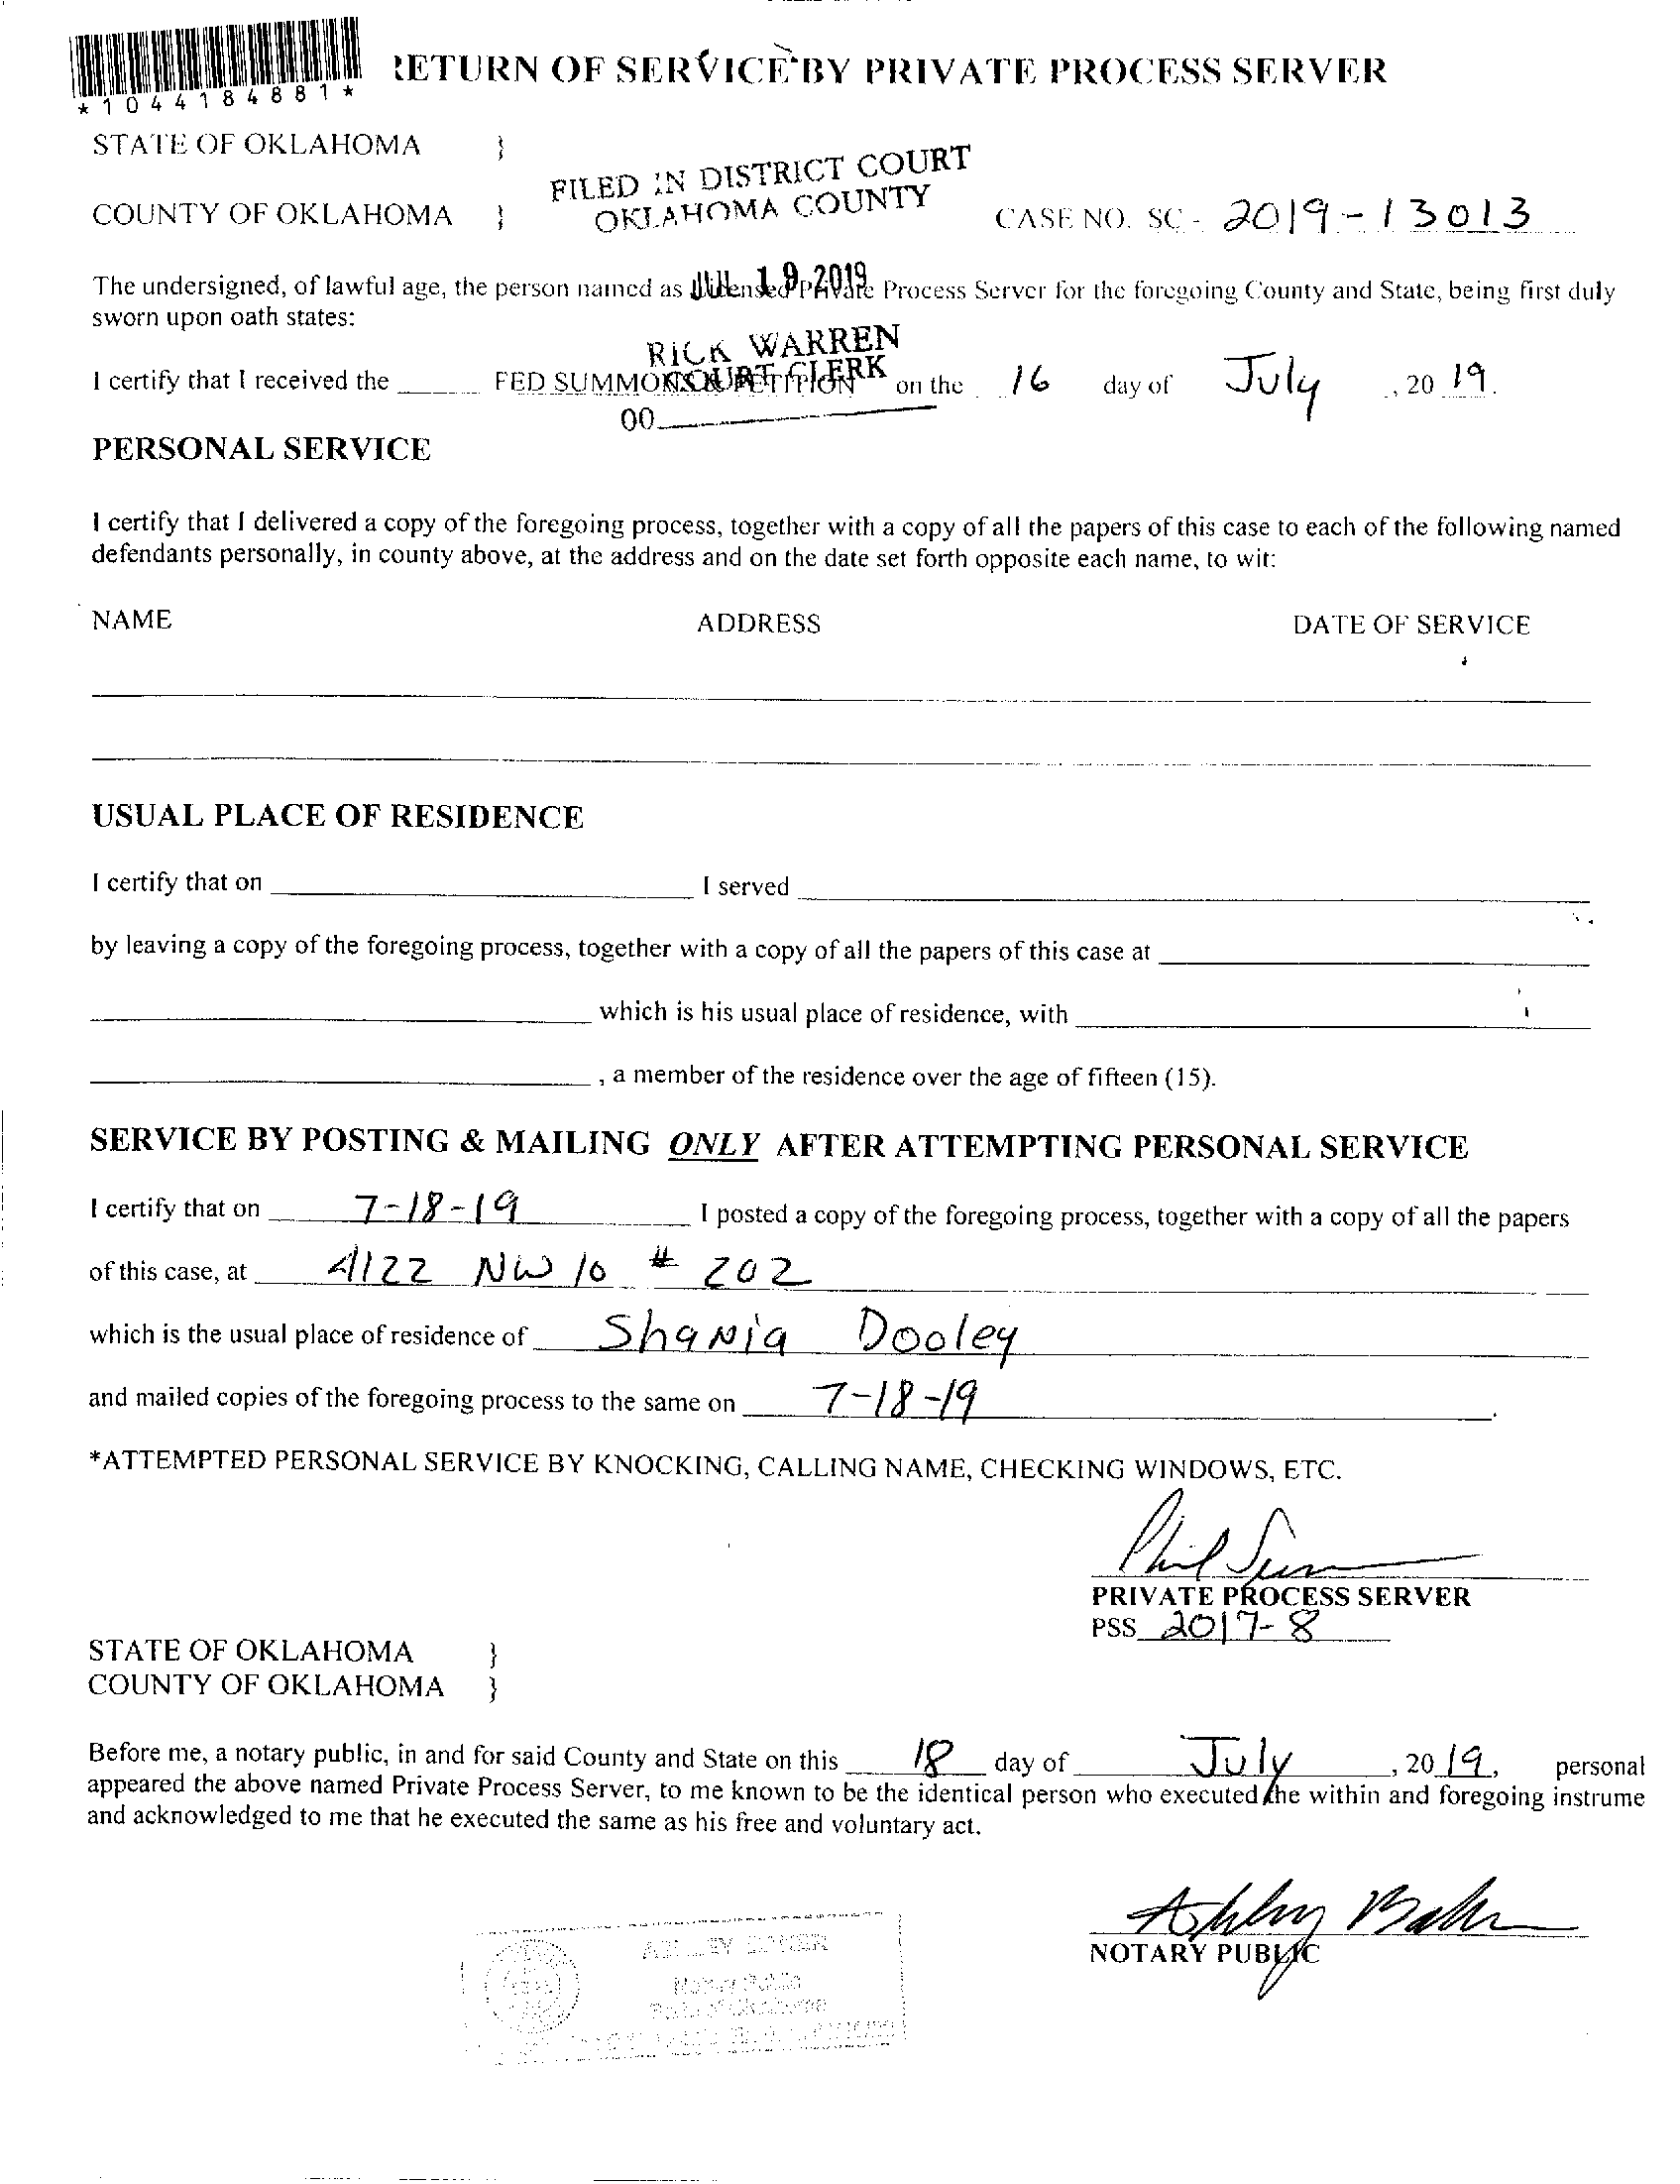 RETURN OF SERVICE BY PRIVATE PROCESS SERVER
*1044184881*
STATE OF OKLAHOMA }
FILED IN DISTRICT COURT
OKLAHOMA COUNTY
COUNTY OF OKLAHOMA } CASE NO. SC - 2019-13013
JUL 19 2019
The undersigned, of lawful age, the person named as Licensed Private Process Server for the foregoing County and State, being first duly
sworn upon oath states:
RICK WARREN
COURT CLERK
I certify that I received the FED SUMMONS & PETITION on the 16 day of July , 20 19.
00
PERSONAL SERVICE
I certify that I delivered a copy of the foregoing process, together with a copy of all the papers of this case to each of the following named
defendants personally, in county above, at the address and on the date set forth opposite each name, to wit:
NAME ADDRESS DATE OF SERVICE
USUAL PLACE OF RESIDENCE
I certify that on I served
by leaving a copy of the foregoing process, together with a copy of all the papers of this case at
which is his usual place of residence, with
, a member of the residence over the age of fifteen (15).
SERVICE BY POSTING & MAILING ONLY AFTER ATTEMPTING PERSONAL SERVICE
I certify that on 7-18-19 I posted a copy of the foregoing process, together with a copy of all the papers
of this case, at 4122 NW 10 # 202
which is the usual place of residence of Shania Dooley
and mailed copies of the foregoing process to the same on 7-18-19.
*ATTEMPTED PERSONAL SERVICE BY KNOCKING, CALLING NAME, CHECKING WINDOWS, ETC.
Phil
PRIVATE PROCESS SERVER
PSS 2017-8
STATE OF OKLAHOMA }
COUNTY OF OKLAHOMA }
Before me, a notary public, in and for said County and State on this 18 day of July , 20 19, personal
appeared the above named Private Process Server, to me known to be the identical person who executed the within and foregoing instrume
and acknowledged to me that he executed the same as his free and voluntary act.
Ashley Baker
NOTARY PUBLIC
ASHLEY BAKER
Notary Public
State of Oklahoma